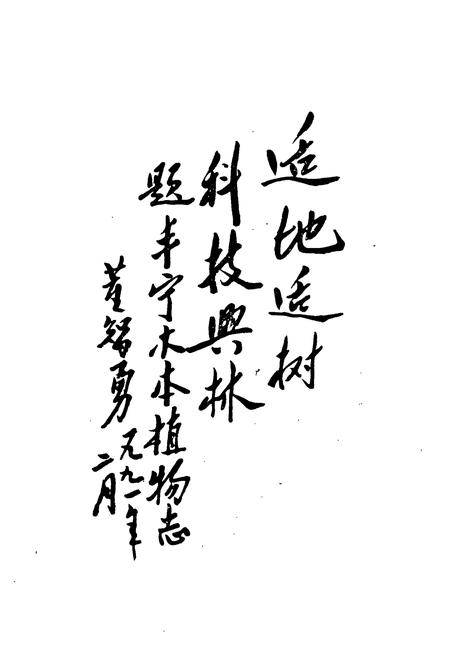 适地适树
科技興林
题丰宁木本植物志
董智勇
一九九一年
二月